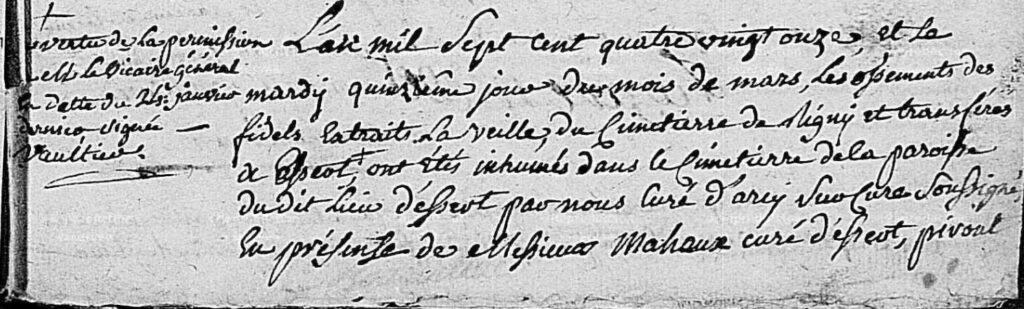 †
en vertu de la permission
de Mr le Vicaire Général
en datte du 24e janvier
dernier signée —
Vaultier.
L'an mil sept cent quatre vingt onze, et le
mardy quinzième jour du mois de mars, les ossements des
fidels extraits la veille, du Cimetierre de Rigny et transférés
à Esseot, ont étés inhumés dans le Cimetierre de la paroisse
du dit lieu d'esseot par nous Curé d'arcy sur Cure soussigné,
En présense de Messieurs Mahaux curé d'esseot, pivoul